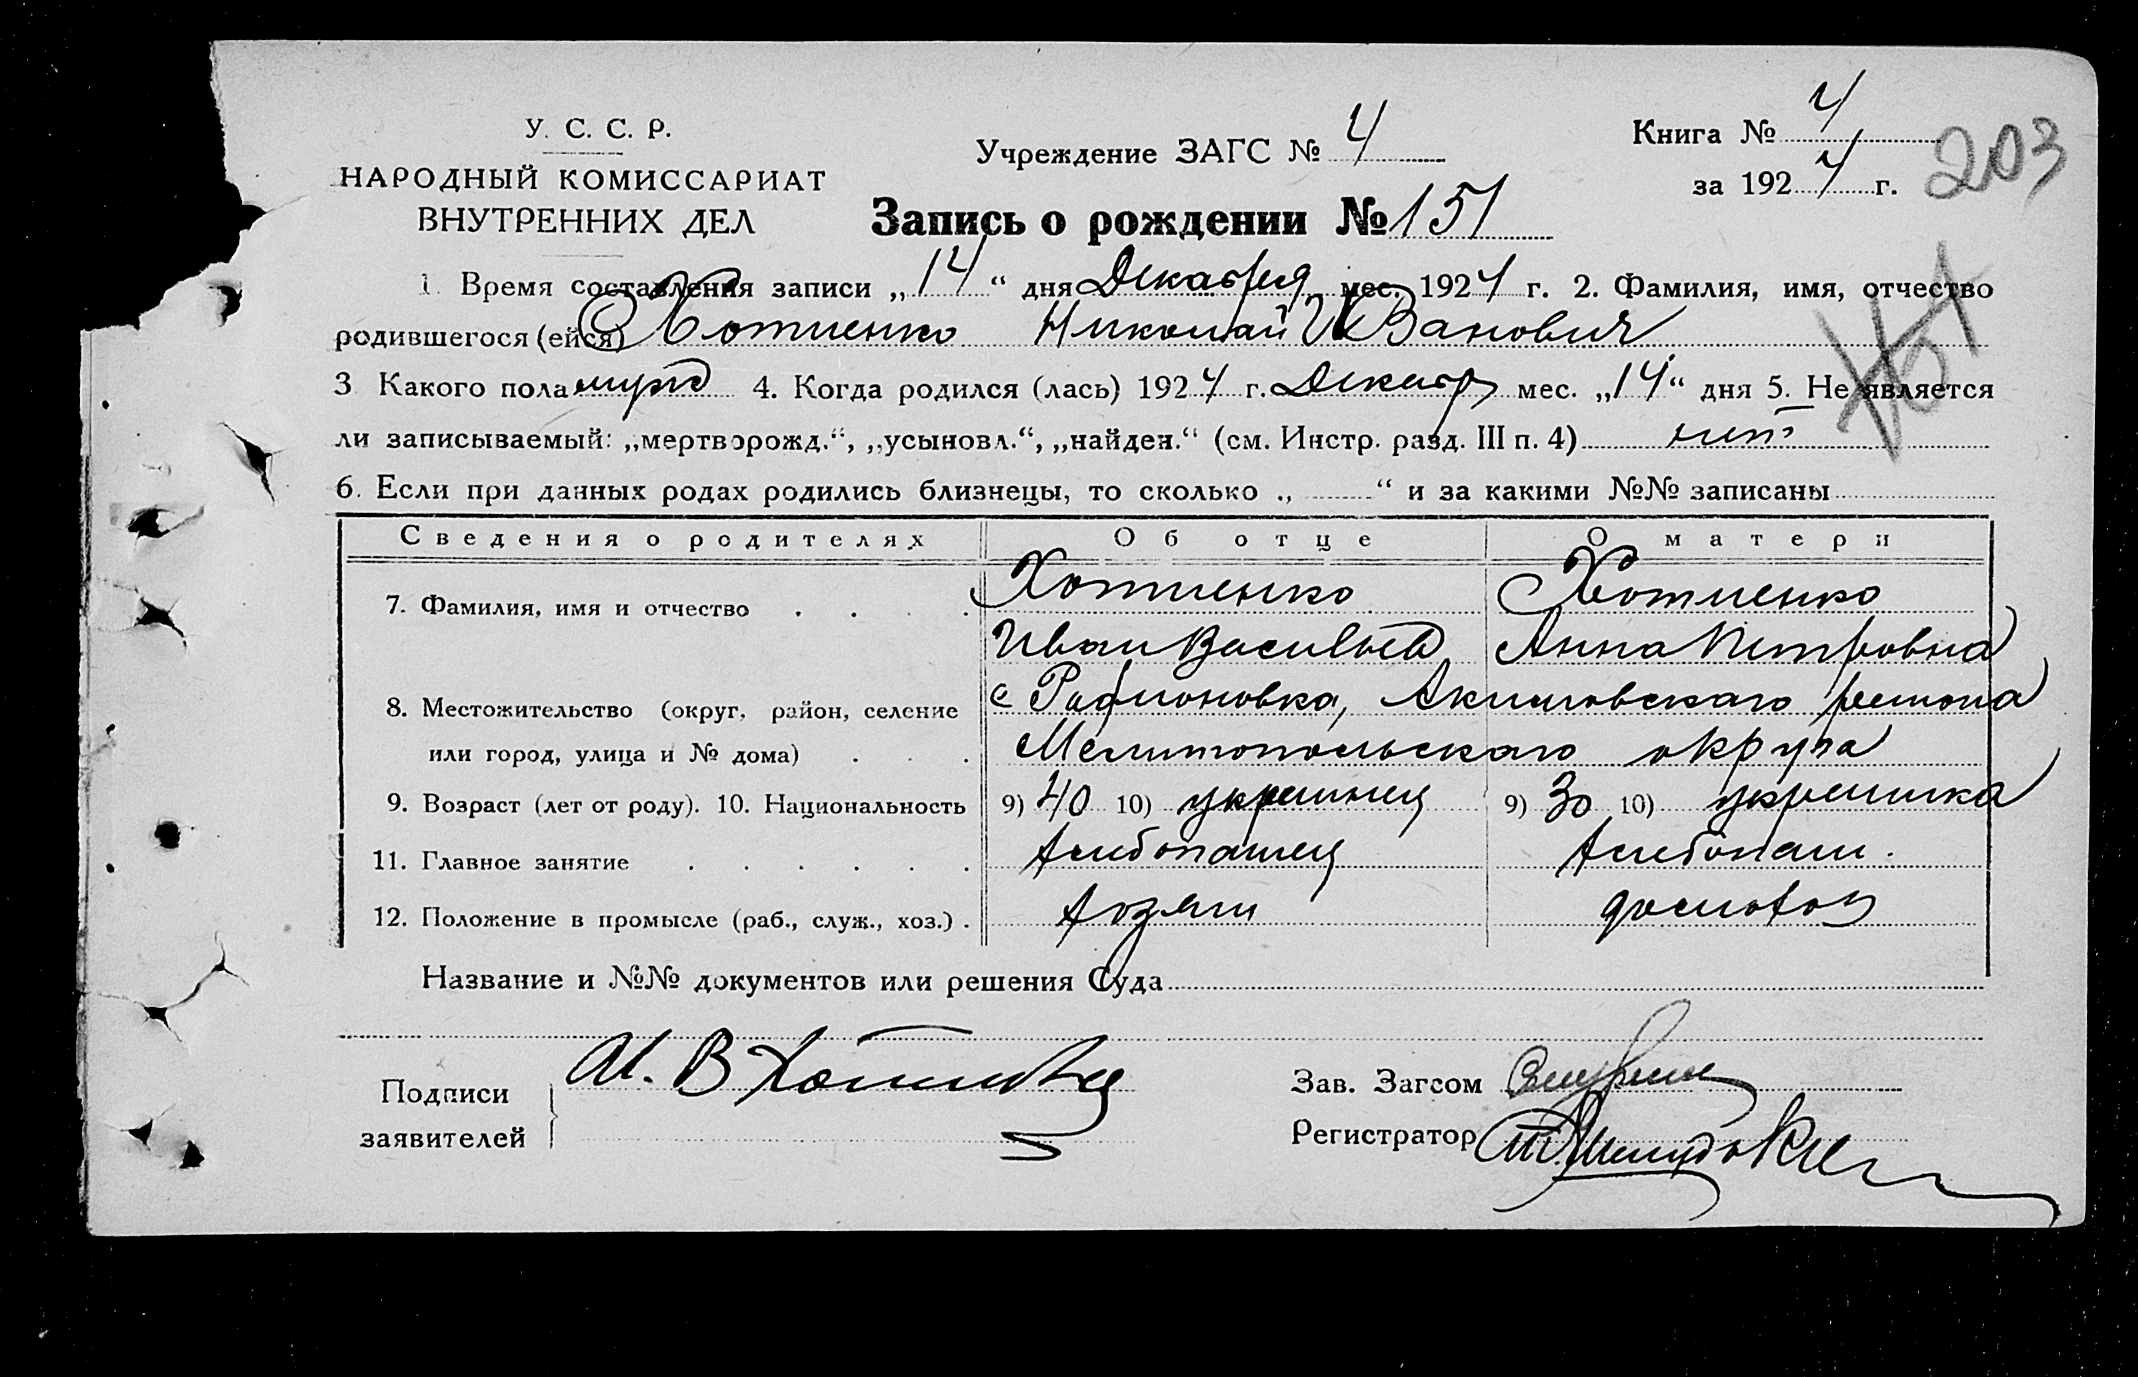 У. С. С. Р.
НАРОДНЫЙ КОМИССАРИАТ
ВНУТРЕННИХ ДЕЛ
Учреждение ЗАГС № 4
Книга № 4
за 1924 г.
203
Запись о рождении № 151
1. Время составления записи „14“ дня Декабря мес. 1924 г. 2. Фамилия, имя, отчество
родившегося (ейся) Хотиенко Николай Иванович
3 Какого пола мужс 4. Когда родился (лась) 1924 г. Декабр мес. „14“ дня 5. Не является
ли записываемый: „мертворожд.“, „усыновл.“, „найден.“ (см. Инстр. разд. III п. 4) нет
6. Если при данных родах родились близнецы, то сколько „ “ и за какими №№ записаны
Сведения о родителях Об отце О матери
7. Фамилия, имя и отчество Хотиенко Хотиенко
Иван Василье Анна Петровна
8. Местожительство (округ, район, селение с Радионовка, Акимовского района
или город, улица и № дома) Мелитопольского округа
9. Возраст (лет от роду). 10. Национальность 9) 40 10) украинец 9) 30 10) украинка
11. Главное занятие хлебопашец хлебопаш.
12. Положение в промысле (раб., служ., хоз.) хозяин домохоз
Название и №№ документов или решения Суда
Подписи
заявителей
И. В
Зав. Загсом
Регистратор